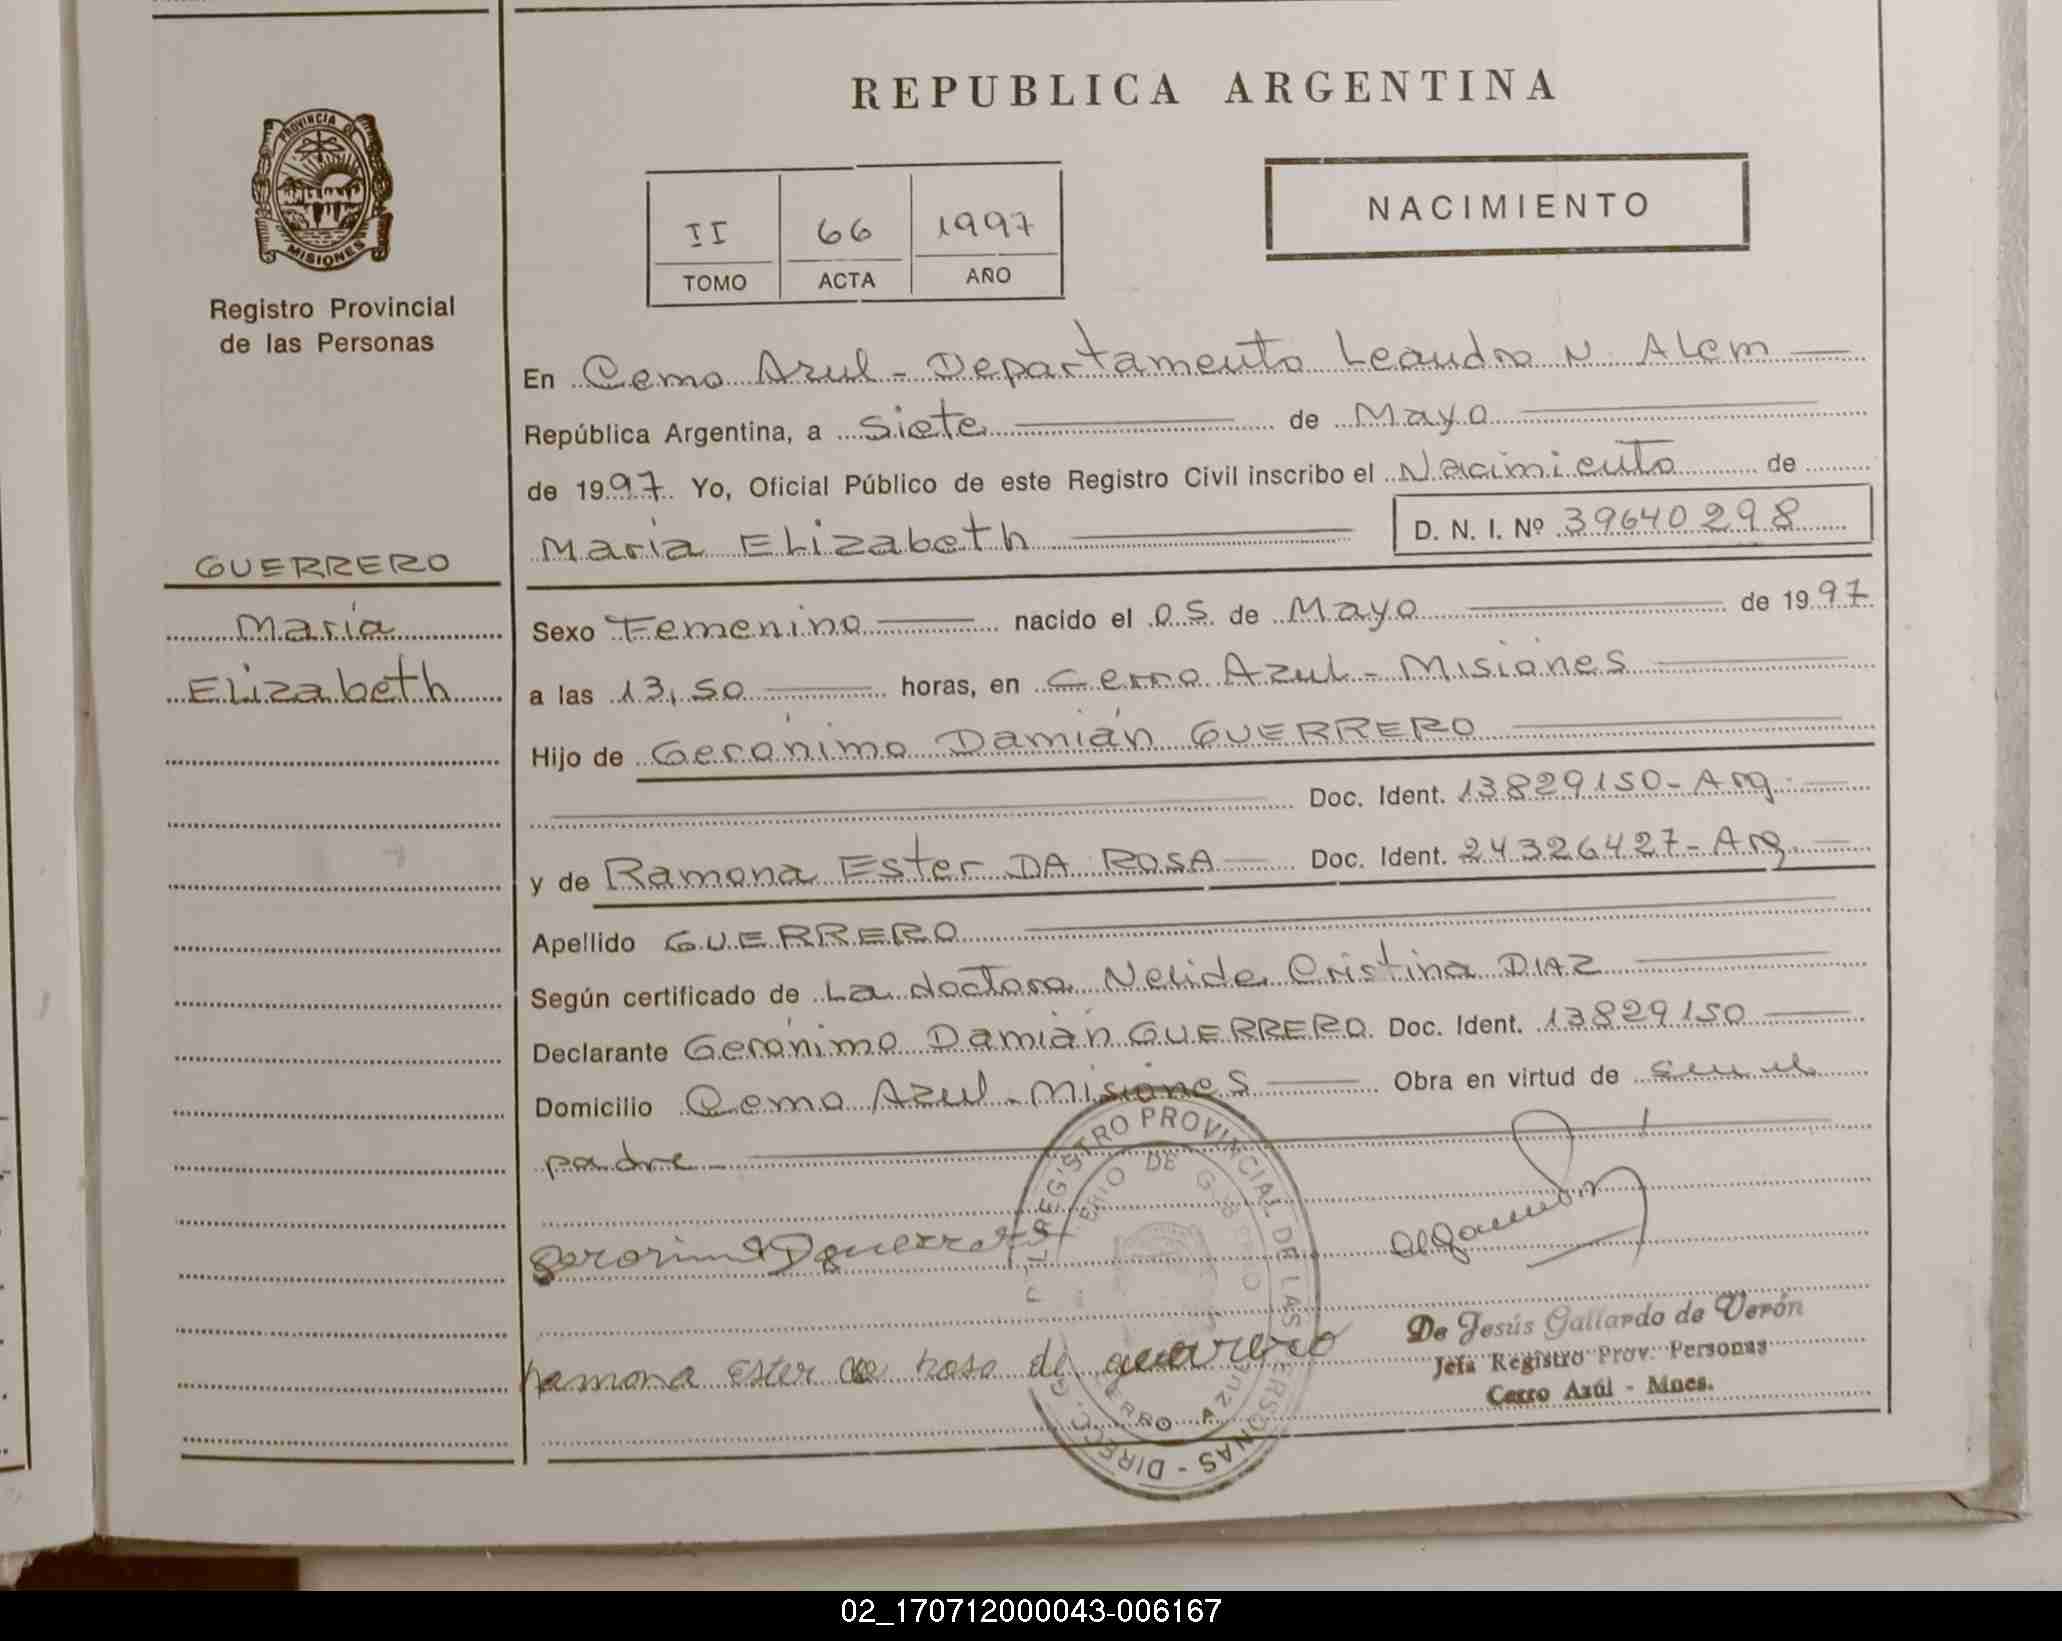 REPUBLICA ARGENTINA
PROVINCIA DE
MISIONES
Registro Provincial
de las Personas
II 66 1997
TOMO ACTA AÑO
NACIMIENTO
En Cerro Azul - Departamento Leandro N. Alem
República Argentina, a Siete de Mayo
de 1997 Yo, Oficial Público de este Registro Civil inscribo el Nacimiento de
María Elizabeth D. N. I. Nº 39640298
GUERRERO
María
Elizabeth
Sexo Femenino nacido el 05 de Mayo de 1997
a las 13,50 horas, en Cerro Azul - Misiones
Hijo de Gerónimo Damián GUERRERO
Doc. Ident. 13829150 - Arg.
y de Ramona Ester DA ROSA Doc. Ident. 24326427 - Arg.
Apellido GUERRERO
Según certificado de La doctora Nelida Cristina DIAZ
Declarante Gerónimo Damián GUERRERO Doc. Ident. 13829150
Domicilio Cerro Azul - Misiones Obra en virtud de ser el
padre -
REGISTRO PROVINCIAL DE LAS PERSONAS - DIRECC. G
CERRO AZUL
Geronimo D guerrero
Ramona Ester da Rosa de guerrero
De Jesús Gallardo de Verón
Jefa Registro Prov. Personas
Cerro Azúl - Mnes.
02_170712000043-006167